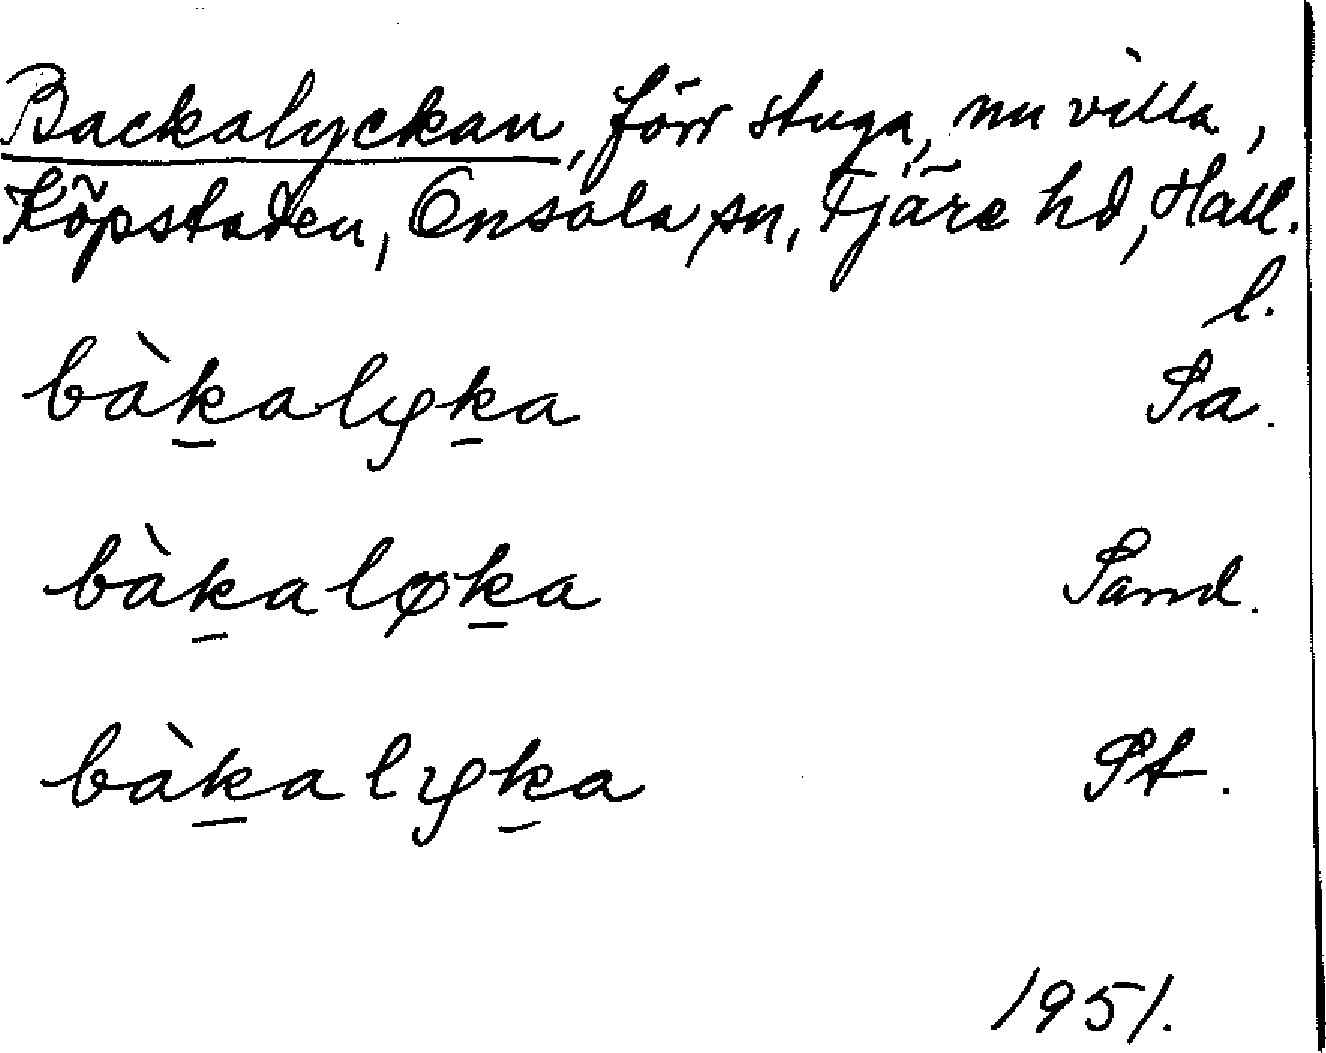 Backalyckan, förr stuga, nu villa,
Köpstaden, Onsala sn, Fjäre hd, Hall.
l.
bàkalyka Sa.
bàkaløka Sand.
bàkalyka St.
1951.